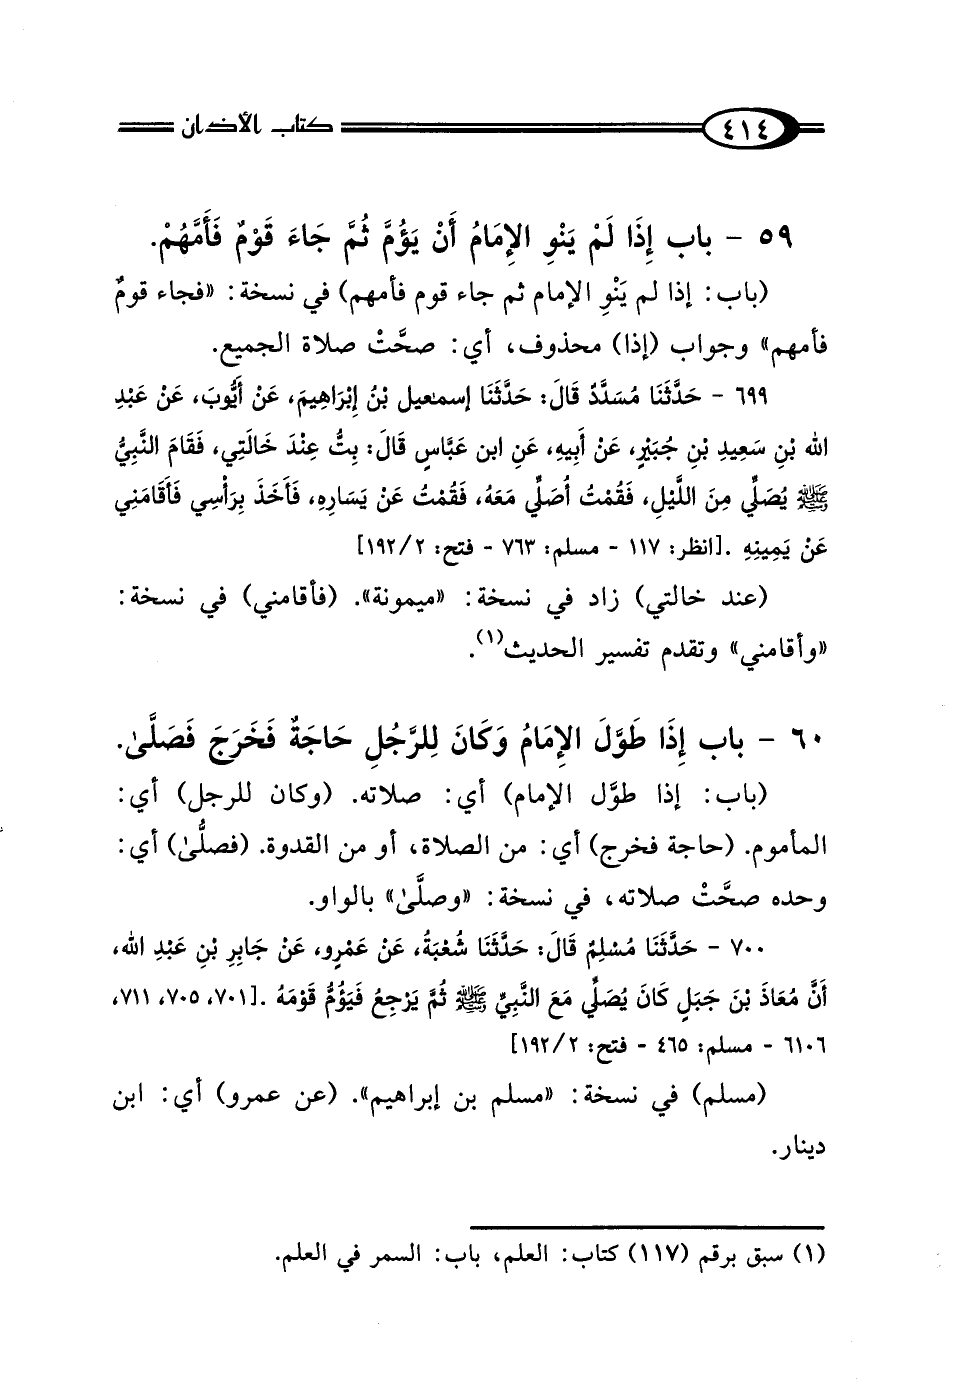 ٤١٤ كتاب الأذان
٥٩ - باب إِذَا لَمْ يَنْوِ الإِمَامُ أَنْ يَؤُمَّ ثُمَّ جَاءَ قَوْمٌ فَأَمَّهُمْ.
(باب: إذا لم يَنْوِ الإمام ثم جاء قوم فأمهم) في نسخة: «فجاء قومٌ
فأمهم» وجواب (إذا) محذوف، أي: صحَّتْ صلاة الجميع.
٦٩٩ - حَدَّثَنَا مُسَدَّدٌ قَالَ: حَدَّثَنَا إسمعيل بْنُ إِبْرَاهِيمَ، عَنْ أَيُّوبَ، عَنْ عَبْدِ
الله بْنِ سَعِيدِ بْنِ جُبَيْرٍ، عَنْ أَبِيهِ، عَنِ ابن عَبَّاسٍ قَالَ: بِتُّ عِنْدَ خَالَتِي، فَقَامَ النَّبِيُّ
ﷺ يُصَلِّي مِنَ اللَّيْلِ، فَقُمْتُ أُصَلِّي مَعَهُ، فَقُمْتُ عَنْ يَسَارِهِ، فَأَخَذَ بِرَأْسِي فَأَقَامَنِي
عَنْ يَمِينِهِ .[انظر: ١١٧ - مسلم: ٧٦٣ - فتح: ٢/ ١٩٢]
(عند خالتي) زاد في نسخة: «ميمونة». (فأقامني) في نسخة:
«وأقامني» وتقدم تفسير الحديث(١).
٦٠ - باب إِذَا طَوَّلَ الإِمَامُ وَكَانَ لِلرَّجُلِ حَاجَةٌ فَخَرَجَ فَصَلَّىٰ.
(باب: إذا طوَّل الإمام) أي: صلاته. (وكان للرجل) أي:
المأموم. (حاجة فخرج) أي: من الصلاة، أو من القدوة. (فصلَّىٰ) أي:
وحده صحَّتْ صلاته، في نسخة: «وصلَّىٰ» بالواو.
٧٠٠ - حَدَّثَنَا مُسْلِمٌ قَالَ: حَدَّثَنَا شُعْبَةُ، عَنْ عَمْرٍو، عَنْ جَابِرِ بْنِ عَبْدِ الله،
أَنَّ مُعَاذَ بْنَ جَبَلٍ كَانَ يُصَلِّي مَعَ النَّبِيِّ ﷺ ثُمَّ يَرْجِعُ فَيَؤُمُّ قَوْمَهُ .[٧٠١، ٧٠٥، ٧١١،
٦١٠٦ - مسلم: ٤٦٥ - فتح: ٢/ ١٩٢]
(مسلم) في نسخة: «مسلم بن إبراهيم». (عن عمرو) أي: ابن
دينار.
(١) سبق برقم (١١٧) كتاب: العلم، باب: السمر في العلم.